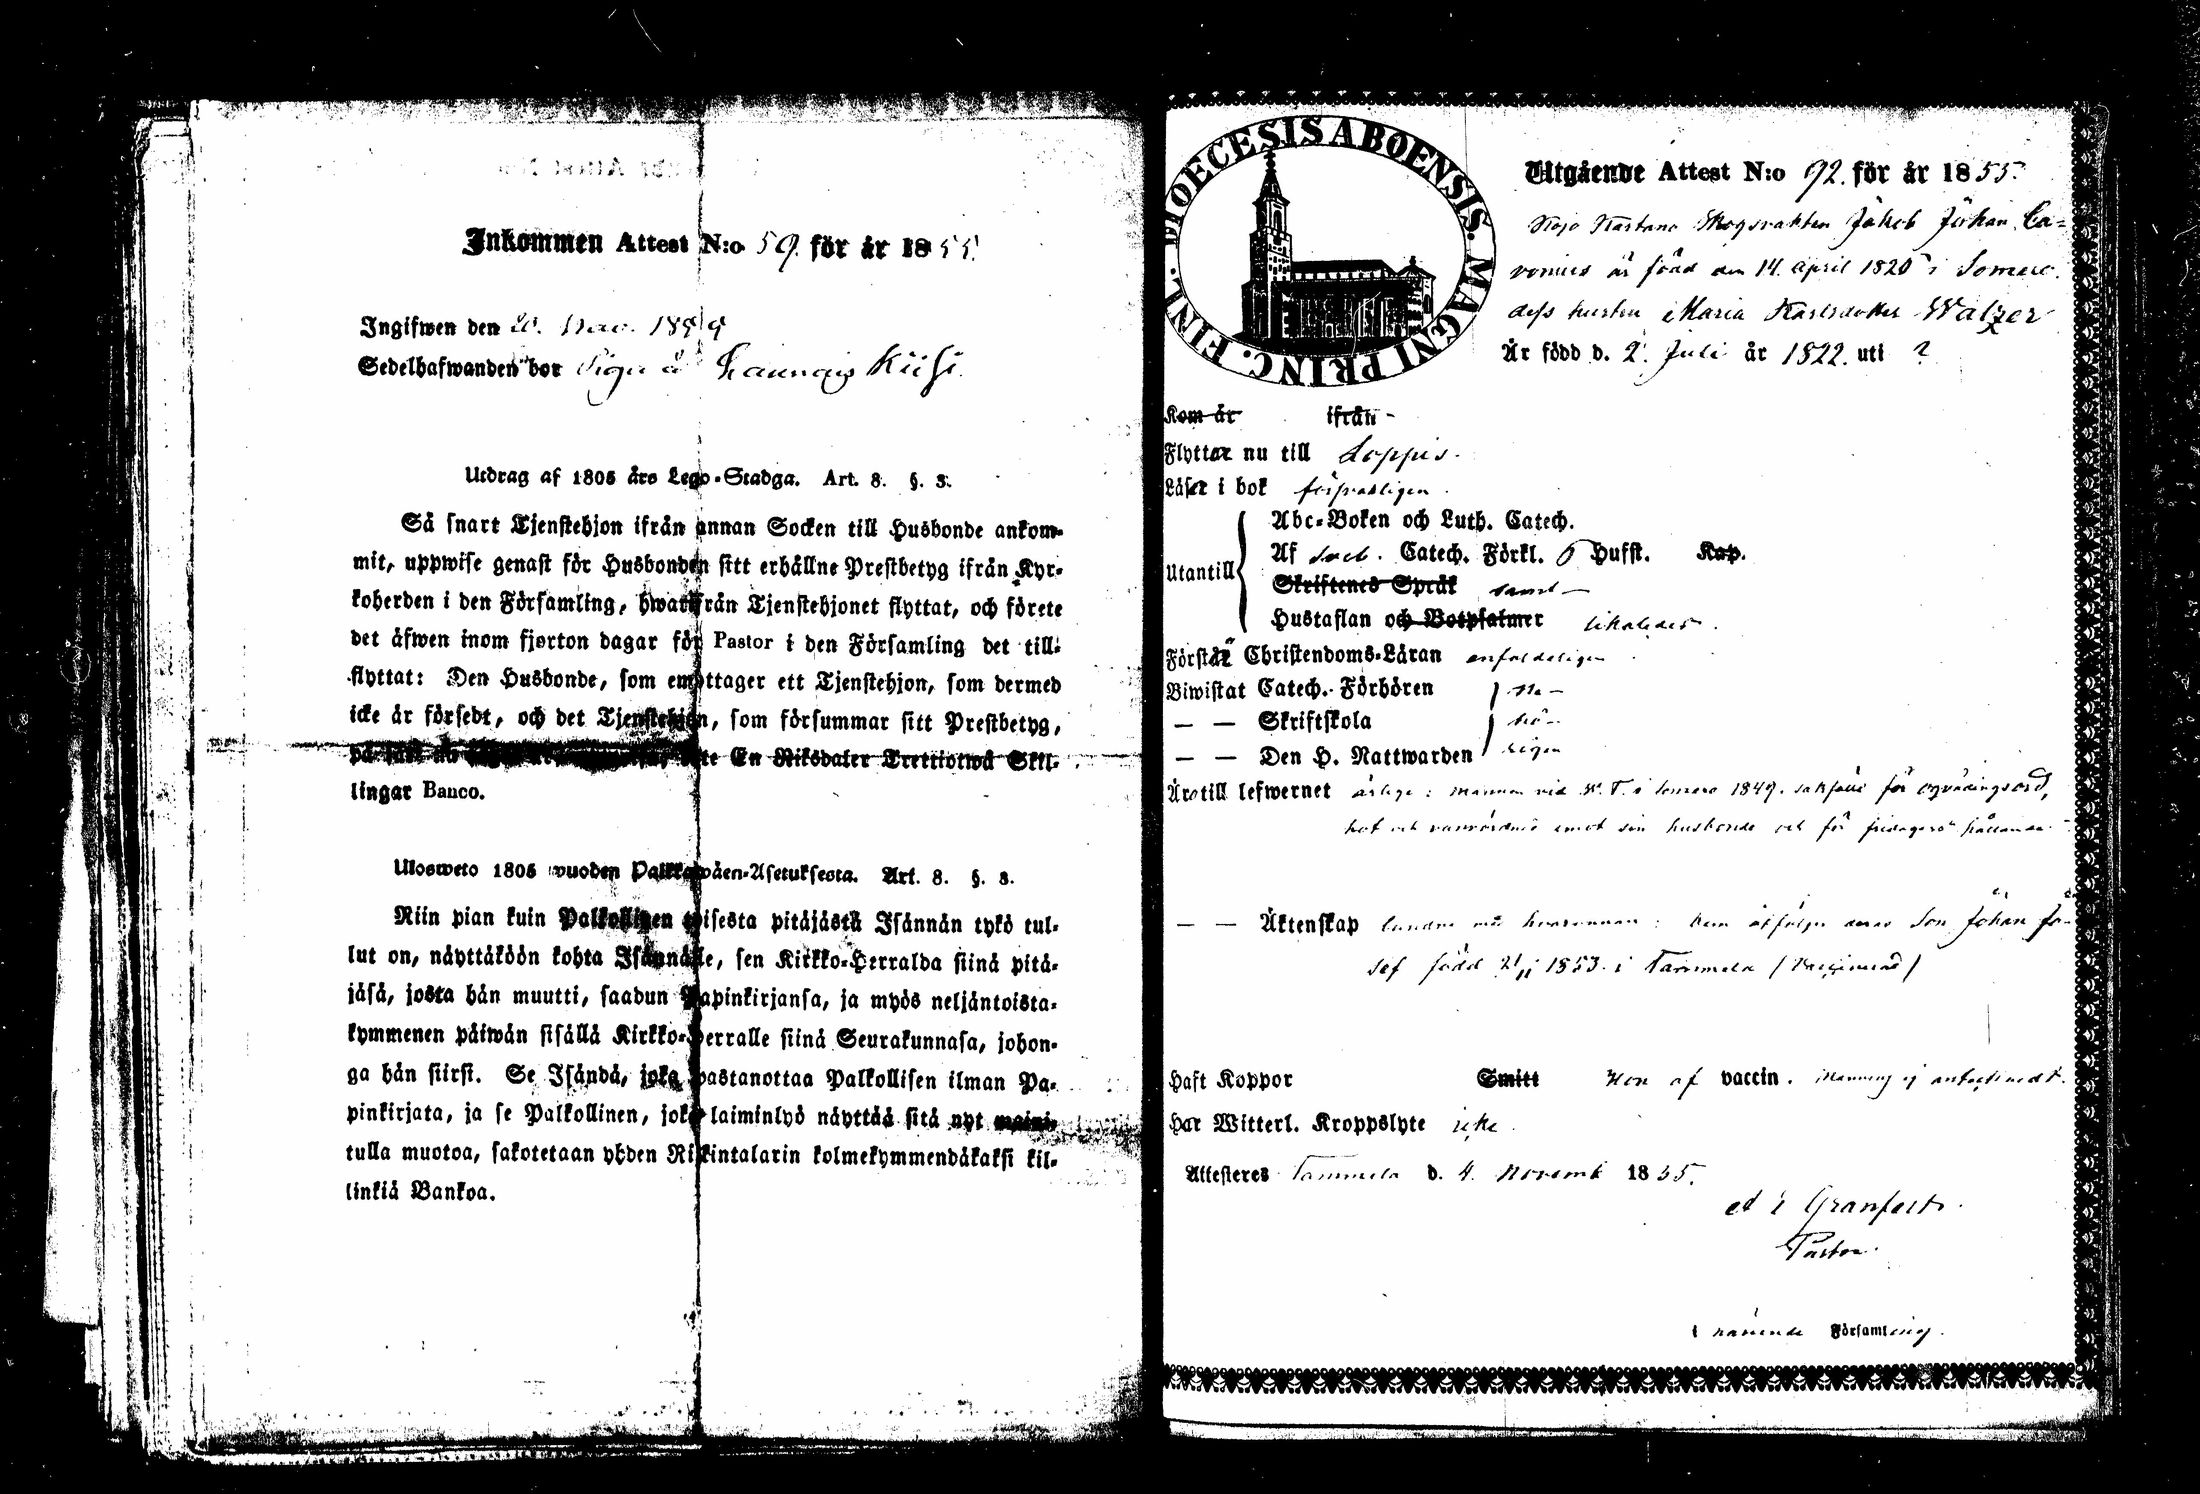 Inkommen Attest N:o 59. för år 1855.
Ingifwen den 20. Nov. 18
Sedelhafwanden bor
Utdrag af 1805 års Lego-Stadga. Art. 8. §. 3.
Så snart Tjenstehjon ifrån annan Socken till Husbonde ankom-
mit, uppwise genast för Husbonden sitt erhållne Prestbetyg ifrån Kyr-
koherden i den Församling, hwarifrån Tjenstehjonet flyttat, och förete
det äfwen inom fjorton dagar för Pastor i den Församling det till-
flyttat: Den Husbonde, som emottager ett Tjenstehjon, som dermed
icke är försedt, och det Tjenstehjon, som försummar sitt Prestbetyg,
på sätt nu En Riksdaler Trettiotwå Skil-
lingar Banco.
Ulosweto 1805 wuoden Palkkawäen-Asetuksesta. Art. 8. §. 3.
Niin pian kuin Palkollinen toisesta pitäjästä Isännän tykö tul-
lut on, näyttäköön kohta Isännälle, sen Kirkko-Herralda siinä pitä-
jäsä, josta hän muutti, saadun Papinkirjansa, ja myös neljäntoista-
kymmenen päiwän sisällä Kirkko-Herralle siinä Seurakunnasa, johon-
ga hän siirsi. Se Isändä, joka wastanottaa Palkollisen ilman Pa-
pinkirjata, ja se Palkollinen, joka laiminlyö näyttää sitä nyt maini-
tulla muotoa, sakotetaan yhden Riikintalarin kolmekymmendäkaksi kil-
linkiä Bankoa.
DIOECESIS ABOENSIS. MAGNI PRINC. FINL.
Utgående Attest N:o 92. för år 1855.
Skogsvakten Jakob Johan Ca-
vonius är född den 14. April 1820 i Somero.
dess hustru Maria Karlsdotter Walzer
Är född d. 2. Juli år 1822. uti ?
Kom år ifrån -
Flyttar nu till Loppis.
Läser i bok försvarligen.
Abc-Boken och Luth. Catech.
Utantill Af Sveb. Catech. Förkl. 5 Hufst. Kap.
Skriftenes Språk samt —
Hustaflan och Botpsalmer likaledes.
Förstår Christendoms-Läran enfaldeligen
Biwistat Catech. Förhören
— — Skriftskola
— — Den H. Nattwarden
Äro till lefwernet ärlige: mannen vid W. T. i Somero 1849. sakfälld för oqvädingsord,
hot och vanvördnad emot sin husbonde och för
— — Äktenskap bundne med hvarannan: dem åtföljer deras Son Johan Jo-
sef född 21/11 1853. i Tammela (Vaccinerad)
Haft Koppor Smitt Hon af vaccin. Mannen ej antecknadt.
Har Witterl. Kroppslyte icke.
Attesteras Tammela d. 4. Novemb 1855.
Granfelt.
Pastor.
i Församling.